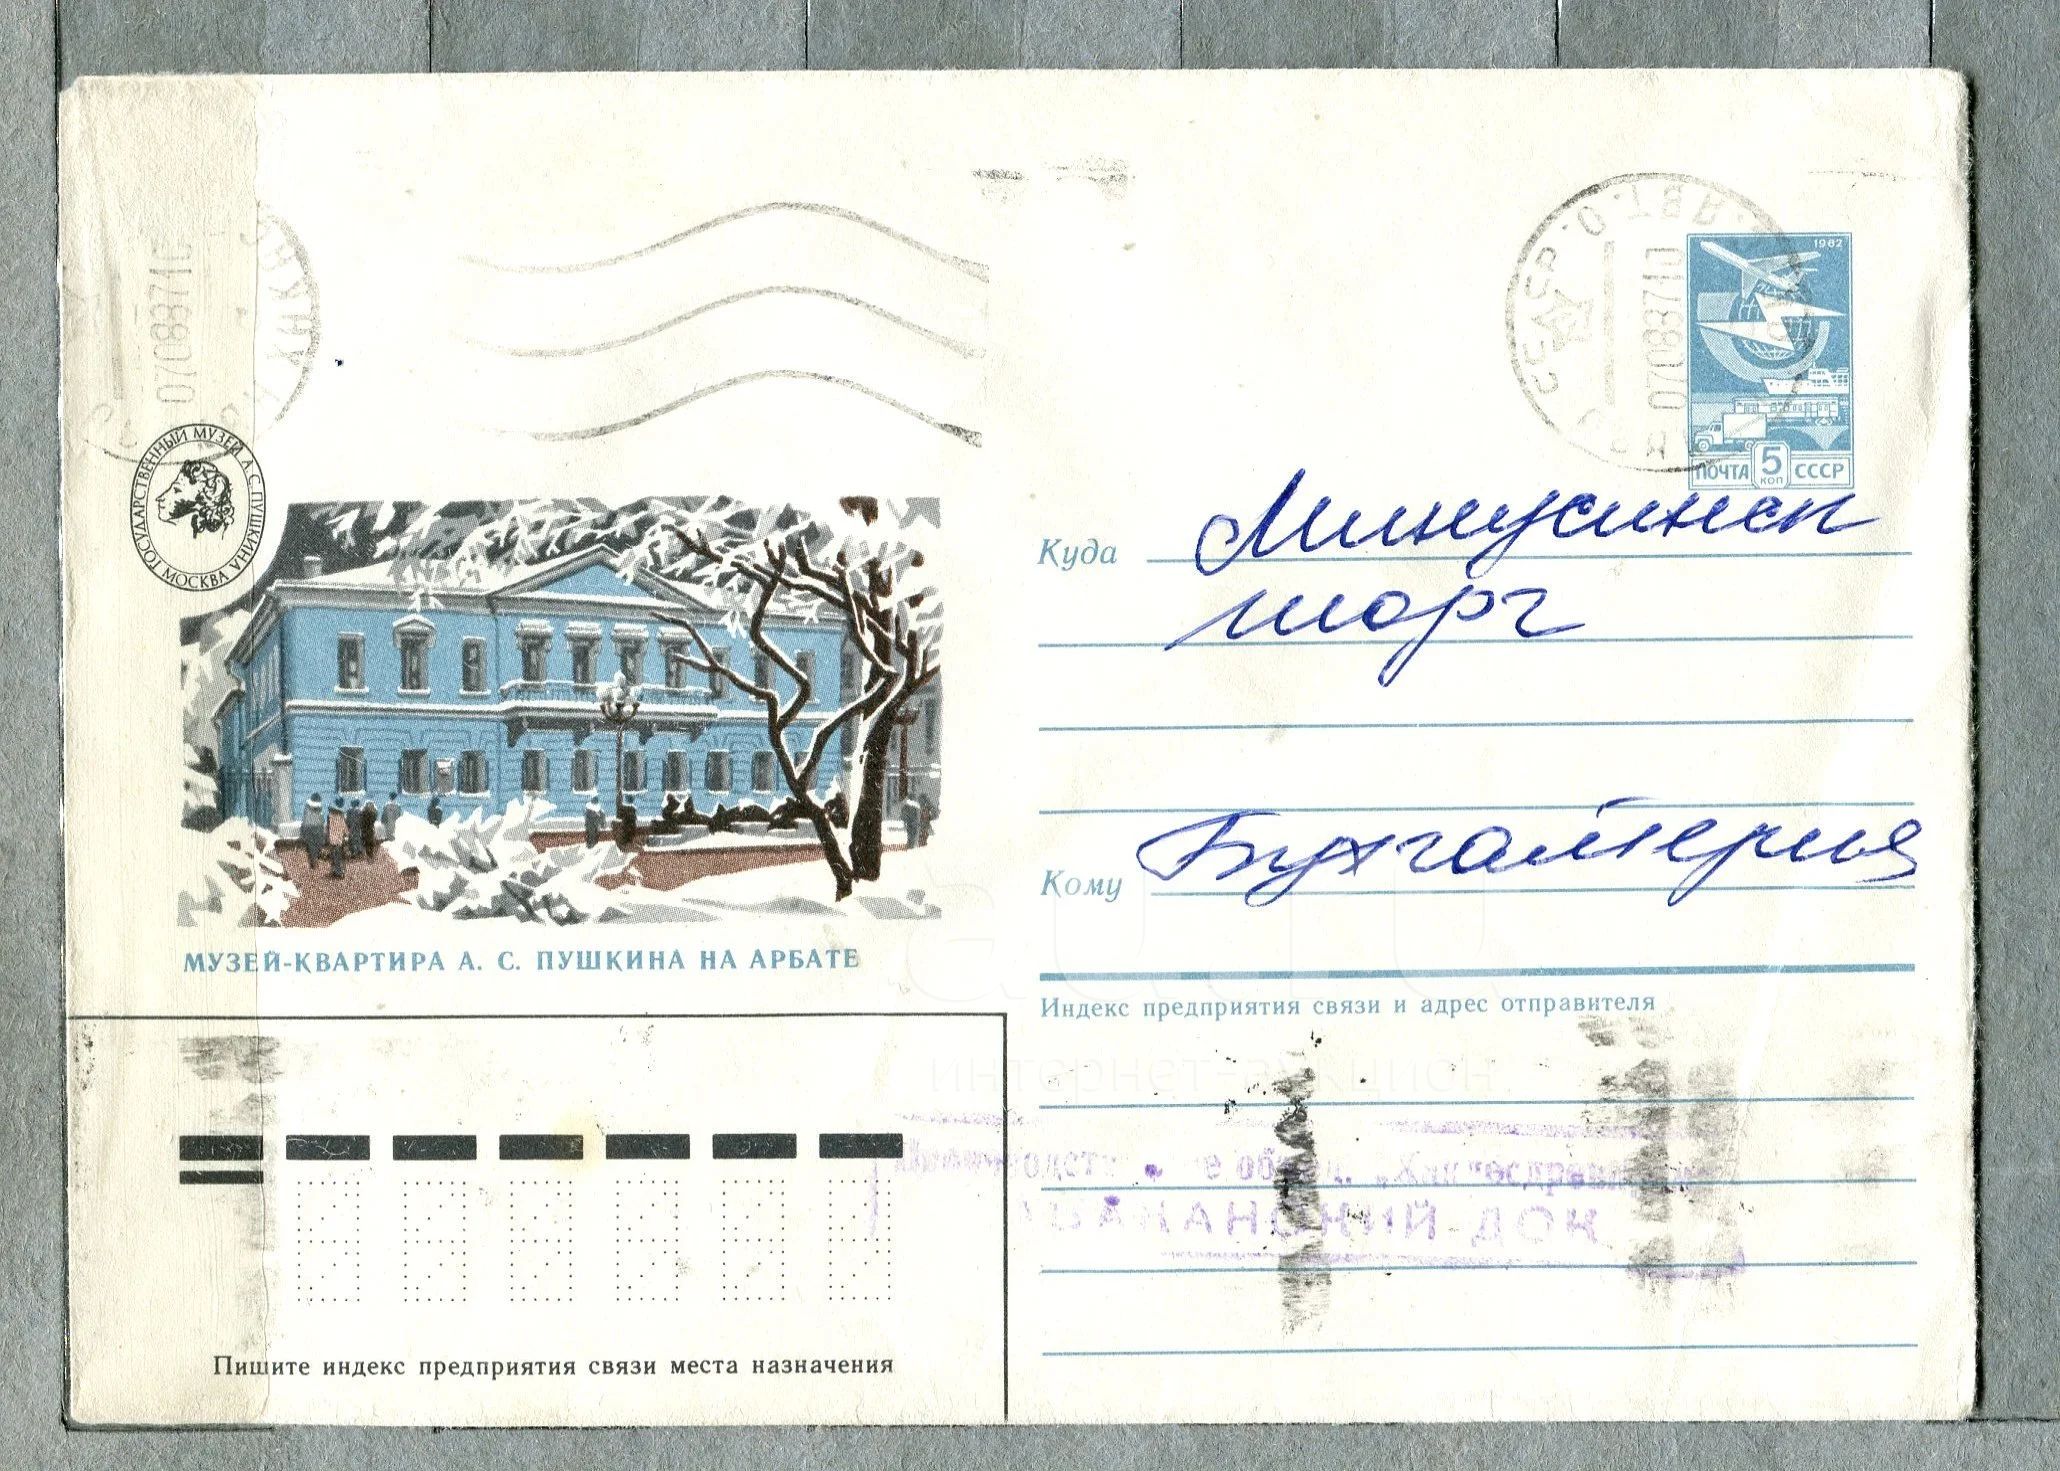 1982
ПОЧТА 5 КОП СССР
07088710
07088710
ГОСУДАРСТВЕННЫЙ МУЗЕЙ А.С.ПУШКИНА
МОСКВА
Куда Минусинск
торг
Кому Бухгалтерия
МУЗЕЙ-КВАРТИРА А. С. ПУШКИНА НА АРБАТЕ
Индекс предприятия связи и адрес отправителя
интернет-аукцион
АБАКАНСКИЙ ДОК
Пишите индекс предприятия связи места назначения